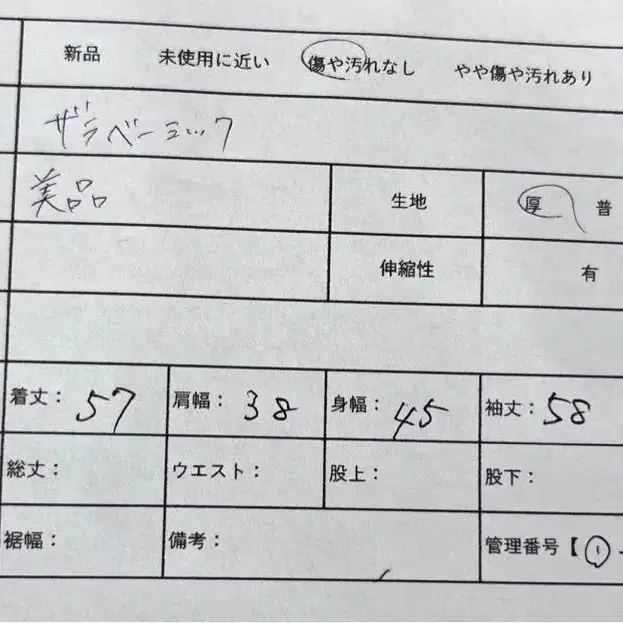 新品 未使用に近い 傷や汚れなし やや傷や汚れあり
ザラベーシック
美品 生地 厚 普
伸縮性 有
着丈: 57 肩幅: 38 身幅: 45 袖丈: 58
総丈: ウエスト: 股上: 股下:
裾幅: 備考: 管理番号【①-